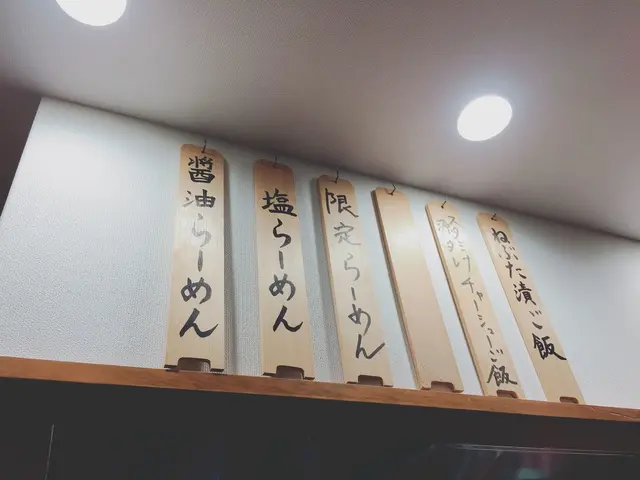 醤油らーめん
塩らーめん
限定らーめん
チャーシューご飯
ねぶた漬ご飯